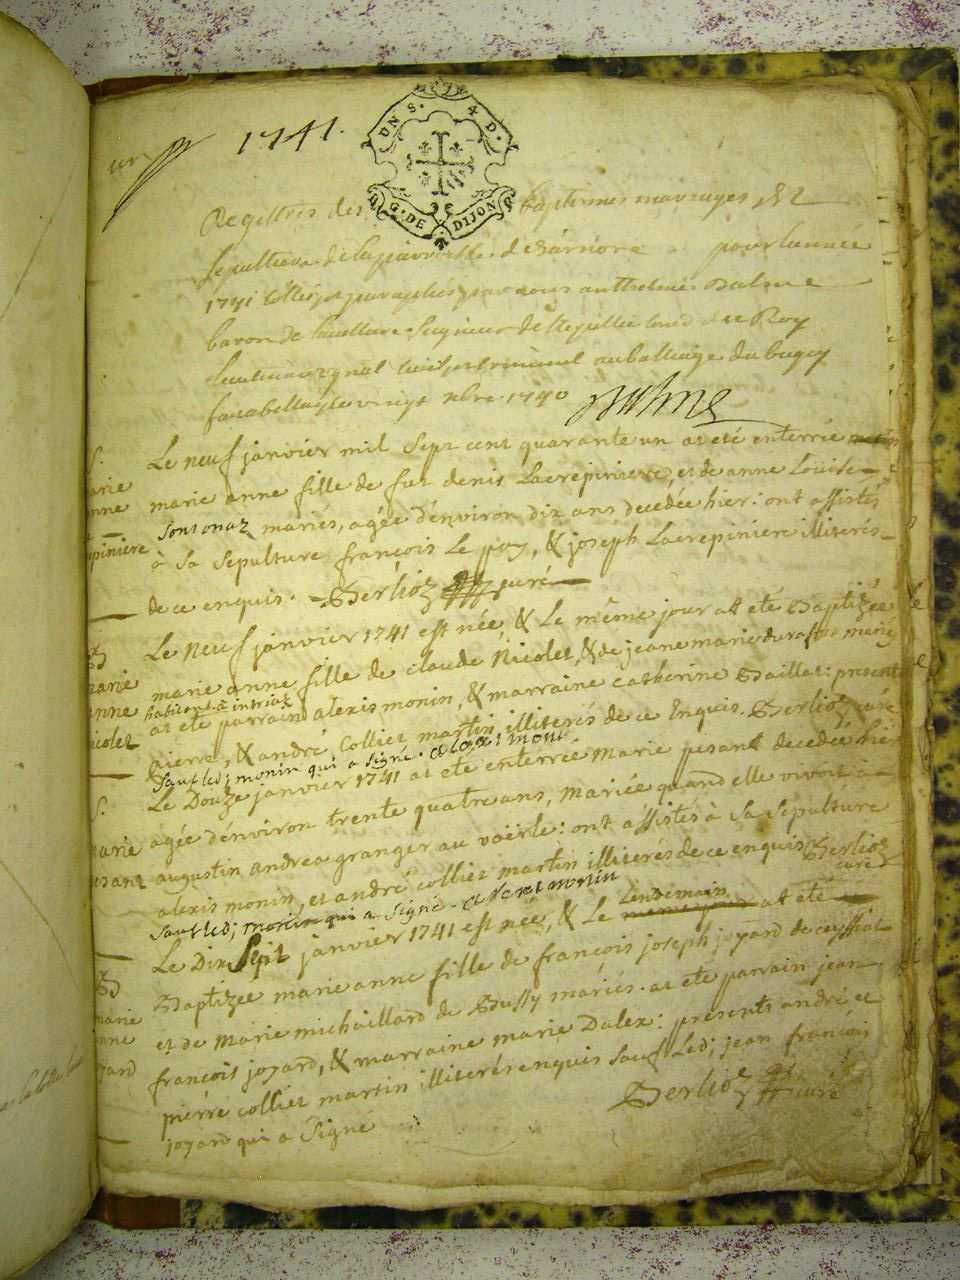 un
1741.
UN S. 4 D.
G. DE DIJON
Registres des baptismes mariages et
sepulture de la parroisse de pour lannee
1741 par nous anthelme Balme
baron de Seigneur de du Roy
Lieutenant gnal civil et criminel au balliage du bugey
fait a belley le vingt xbre 1740 Balme
S.
arie
nne
La
epiniere
Le neuf janvier mil sept cent quarante un at eté enterrée
marie anne fille de fut denis Lacrepiniere, et de anne Loüise
Sontonaz mariés, agée d'environ dix ans decedée hier: ont assistés
à sa sepulture françois Le poy, & joseph Lacrepiniere illiterés
de ce enquis. Berlioz curé
B
marie
anne
nicolet
Le neuf janvier 1741 est née, & Le même jour at eté Baptizée
marie anne fille de claude Nicolet, & de jeane marie mariés
habitants à intriaz
at eté parrain alexis monin, & marraine catherine Baillat: presents
pierre, & andré Colliet martin illiterés de ce Enquis. Berlioz curé
Sauf ledj monin qui a signé. alexi moni
S.
marie
pesant
Le Douze janvier 1741 at eté enterrée Marie pesant decedée hier
agée d'environ trente quatre ans, mariée quand elle vivoit à
augustin andrea granger au voërle: ont assistés à Sa Sepulture
alexis monin, et andré colliet martin illiterés de ce enquis Berlioz
curé
Sauf ledj monin qui a signé. alexi monin
B
marie
anne
joyard
Le Dix Sept janvier 1741 est née, & Le lendemain at eté
Baptizée marie anne fille de françois joseph joyard de ceyssiat
et de Marie michaillard de Bussy mariés. at eté parrain jean
françois joyard, & marraine marie Dalex: presents andré et
pierre colliet martin illiterés enquis sauf Ledj jean françois
joyard qui a signé Berlioz curé